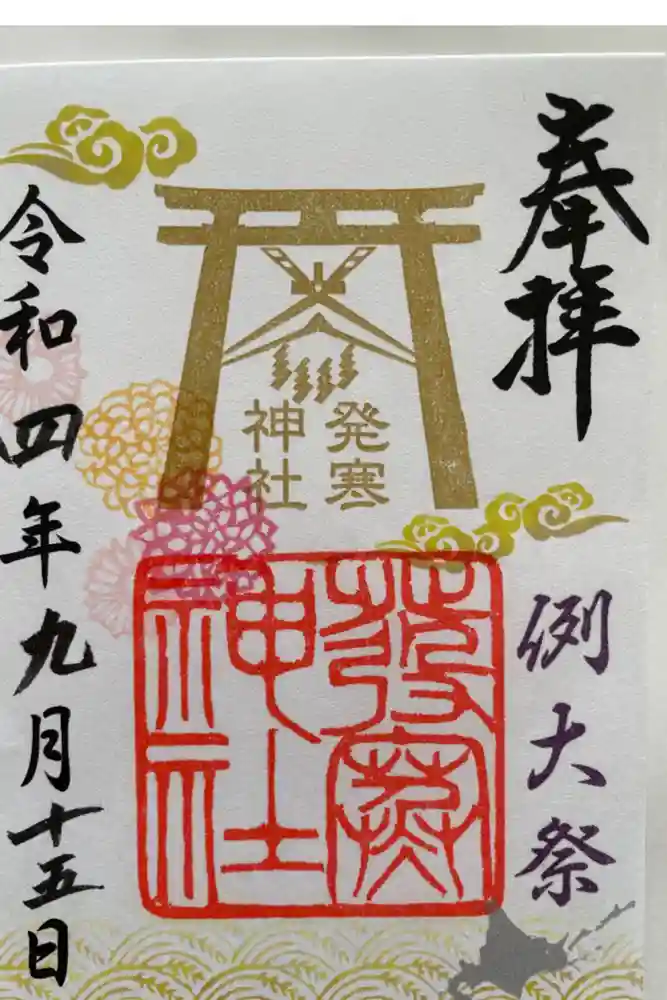 奉拝
例大祭
発寒
神社
發寒
神社
令和四年九月十五日